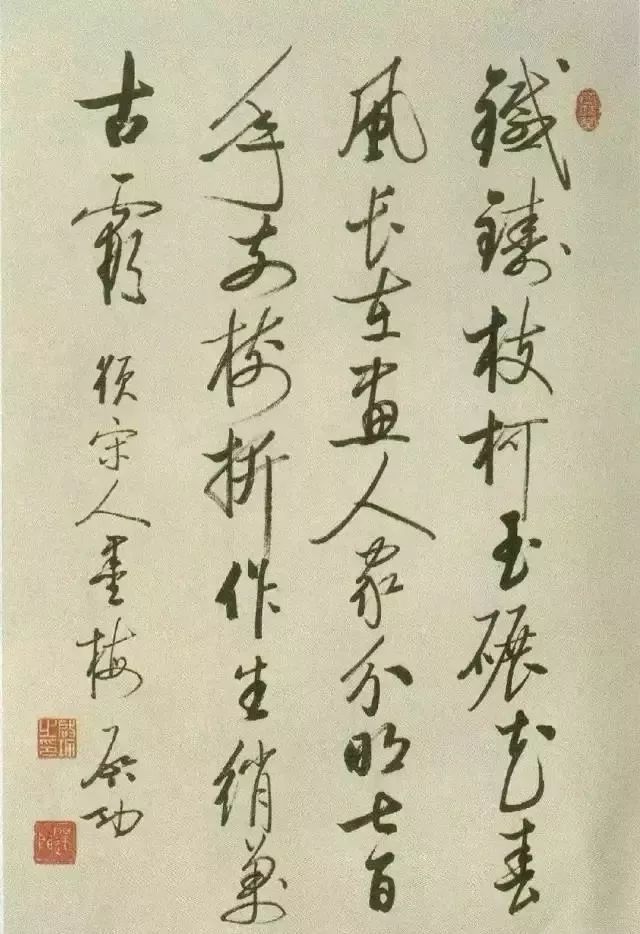 鐵鑄枝柯玉碾花春
風長在畫人家分明七百
年前樹折作生綃萬
古霞 題宋人墨梅 启功